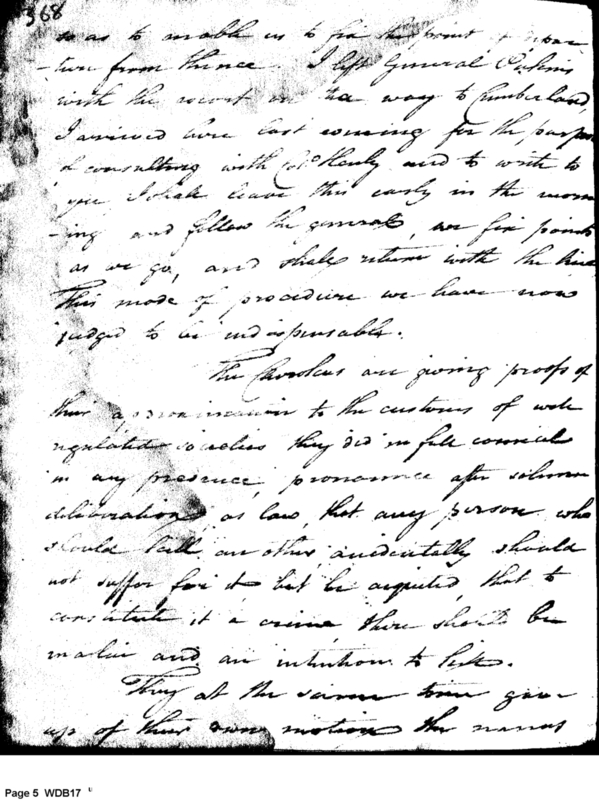 368
so as to enable us to fix the point of depar
-ture from thence. I left General Pickens
with the escort on the way to Cumberland,
I arrived here last evening for the purpose
of consulting with Colo. Henly and to write to
you, I shall leave this early in the morn
-ing and follow the general, we fix points
as we go, and shall return with the line
This mode of procedure we have now
judged to be indispensable.
The Cherokees are giving proofs of
their approximation to the customs of well
regulated societies they did in full council
in my presence, pronounce after solemn
deliberation, as law, that any person who
should kill an other accidentally should
not suffer for it but be acquited, that to
constitute it a crime, there should be
malice and an intention to kill.
They at the same time gave
up of their own motion the names
Page 5 WDB17